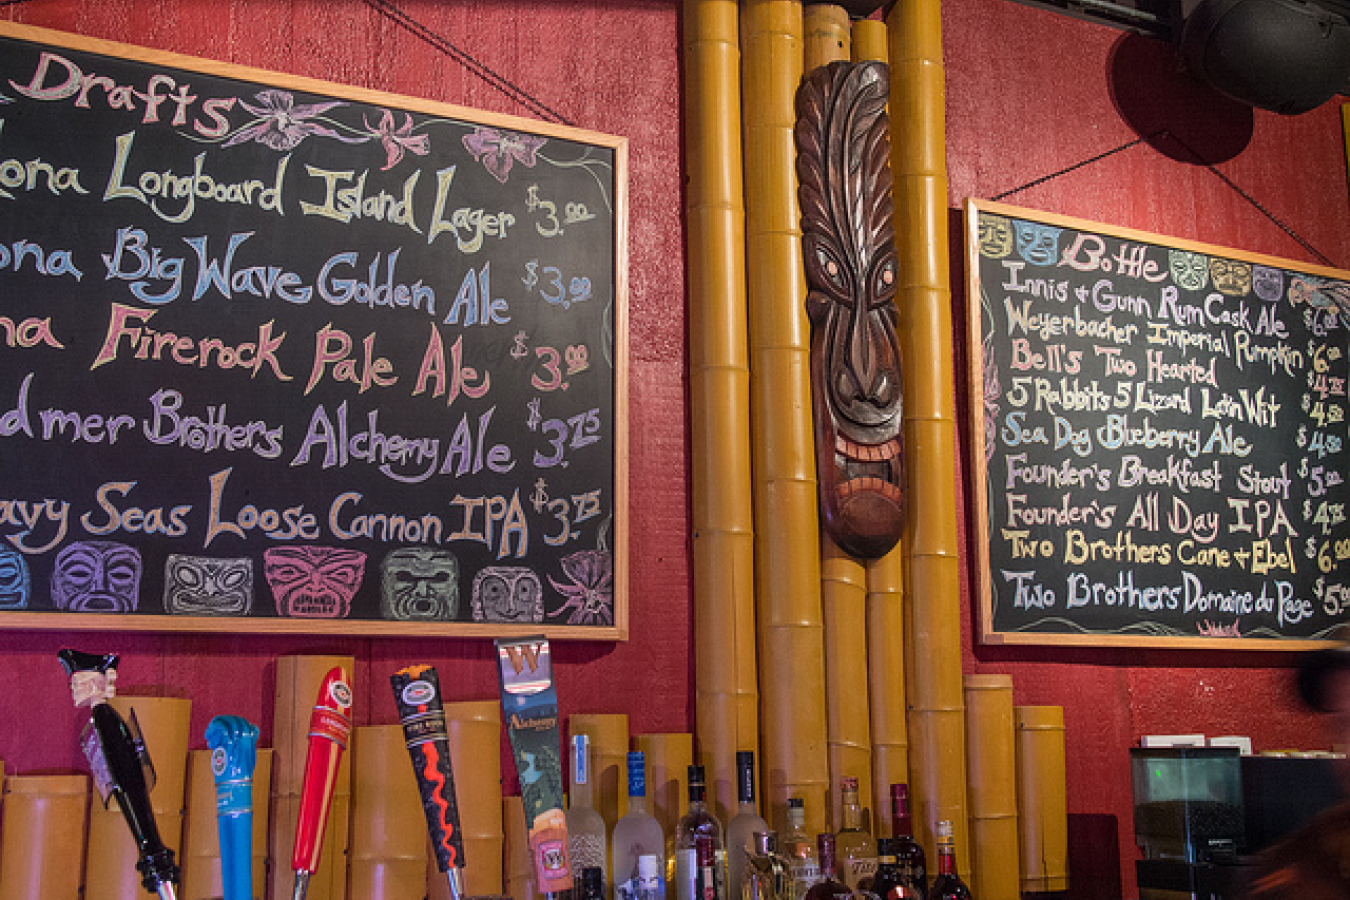 Drafts
ona Longboard Island Lager $3.00
ona Big Wave Golden Ale $3.00
na Firerock Pale Ale $3.00
dmer Brothers Alchemy Ale $3.75
avy Seas Loose Cannon IPA $3.75
Bottle
Innis + Gunn Rum Cask Ale $6.00
Weyerbacher Imperial Pumpkin $6.00
Bell's Two Hearted $4.75
5 Rabbits 5 Lizard Latin Wit $4.50
Sea Dog Blueberry Ale $4.50
Founder's Breakfast Stout $5.00
Founder's All Day IPA $4.75
Two Brothers Cane + Ebel $6.00
Two Brothers Domaine du Page $5.00
Alchemy